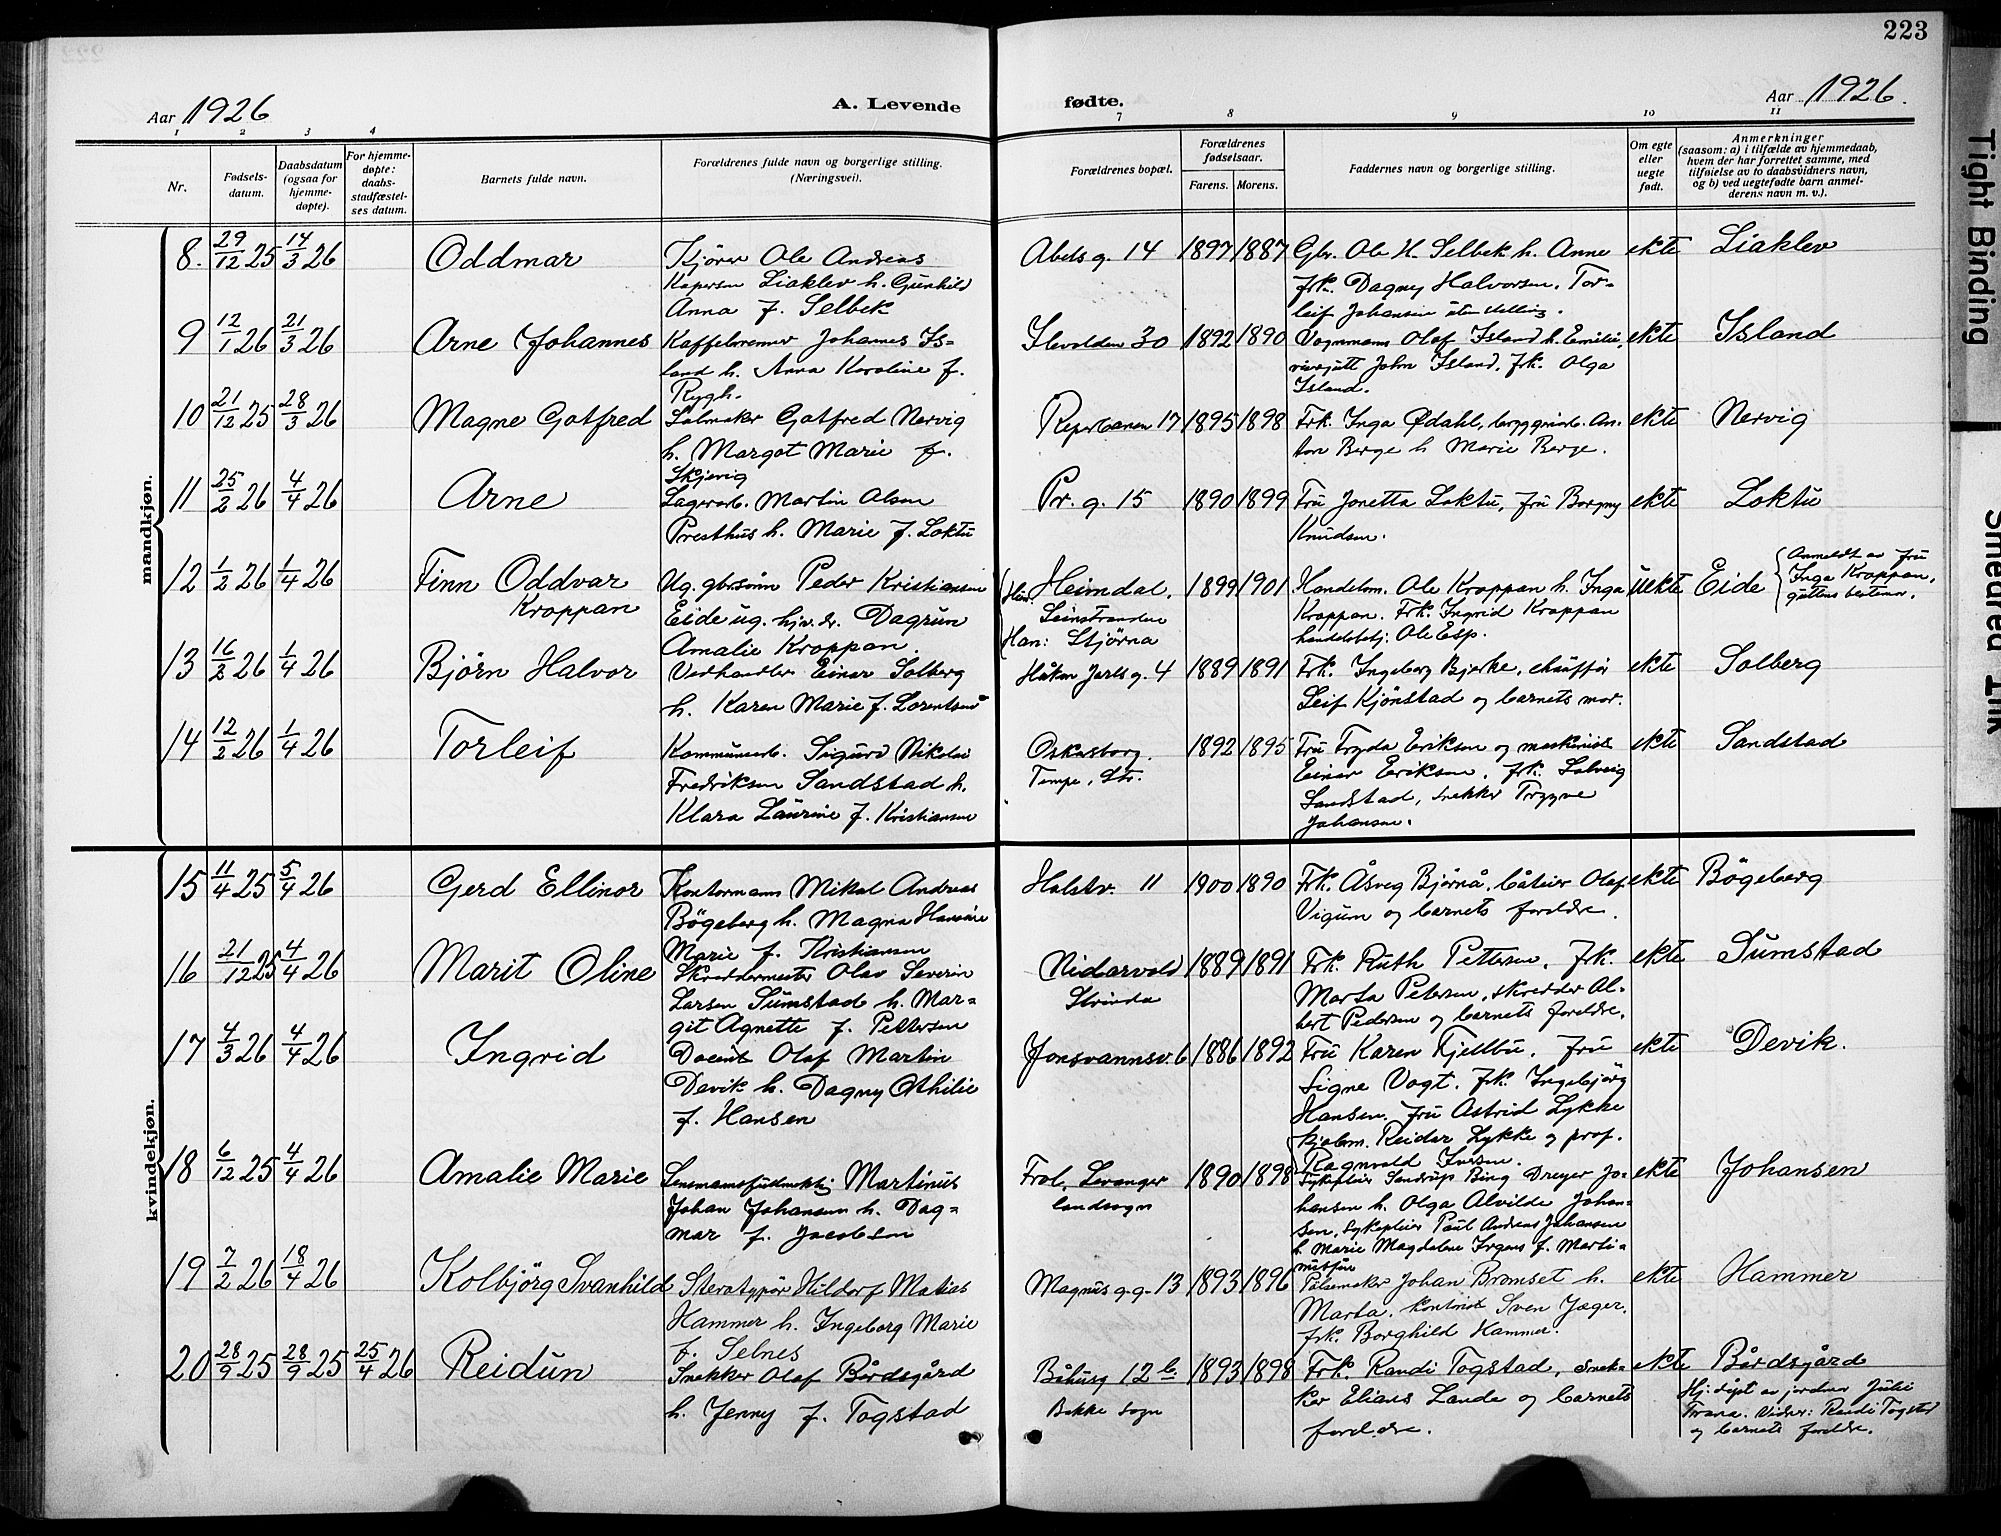 223
Aar 1926
A. Levende
fødte.
Aar 1926.
1 2 3 4
7 8 9 10 11
Nr.
Fødsels-
datum.
Daabsdatum
(ogsaa for
hjemme-
døpte).
For hjemme-
døpte:
daabs-
stadfæstel-
ses datum.
Barnets fulde navn.
Forældrenes fulde navn og borgerlige stilling.
(Næringsvei).
Forældrenes bopæl.
Forældrenes
fødselsaar.
Farens. Morens.
Faddernes navn og borgerlige stilling.
Om egte
eller
uegte
født.
Anmerkninger
(saasom: a) i tilfælde av hjemmedaab,
hvem der har forrettet samme, med
tilføielse av to daabsvidners navn,
og b) ved uegtefødte barn anmel-
derens navn m. v.).
mandkjøn.
8. 29/12 25 14/3 26 Oddmar
Kjører Ole Andreas
Kapersen Liaklev h. Gunhild
Anna f. Selbek
Abels g. 14 1897 1887
Gbr. Ole H. Selbek h. Anne
frk. Dagny Halvorsen, Tor-
leif Johansen uten stilling.
ekte Liaklev
9 12/1 26 21/3 26 Arne Johannes
Kaffebrenner Johannes Is-
land h. Anna Karoline f.
Rygh.
Ilevolden 30 1892 1890
Vognmann Olaf Island h. Emilie,
John Island, frk. Olga
Island.
ekte Island
10 21/12 25 28/3 26 Magne Gotfred
Salmaker Gotfred Nervig
h. Margot Marie f.
Skjevig
Reperbanen 17 1895 1898
Frk. Inga Ødahl, bryggeriarb. An-
ton Berge h Marie Berge.
ekte Nervig
11 25/2 26 4/4 26 Arne
Lagerarb. Martin Olsen
Presthus h. Marie f. Loktu
Pr. g. 15 1890 1899
Fru Jonetta Loktu, fru Borgny
Knudsen.
ekte Loktu
12 1/2 26 1/4 26 Finn Oddvar
Kroppan
Ug. gbrsønn Peder Kristiansen
Eide ug. hjv. dr. Dagrun
Amalie Kroppan.
Hun: Heimdal,
Leinstranden
Han: Stjørna
1899 1901
Handelsm. Ole Kroppan h. Inga
Kroppan. Frk. Ingrid Kroppan
handelsbtj. Ole Esp.
uekte Eide
Anmeldt av fru
Inga Kroppan,
guttens bestemor.
13 16/2 26 1/4 26 Bjørn Halvor
Vedhandler Einar Solberg
h. Karen Marie f. Lorentsen
Håkon Jarls g. 4 1889 1891
Frk. Ingeborg Bjerke, chauffør
Leif Kjønstad og barnets mor.
ekte Solberg
14 12/2 26 1/4 26 Torleif
Kommunearb. Sigurd Nikolai
Fredriksen Sandstad h.
Klara Laurine f. Kristiansen
Oskarsborg.
Tempe, Str.
1892 1895
Fru Fryda Eriksen og maskinist
Einar Eriksen, frk. Solveig
Sandstad, snekker Trygve
Johansen.
ekte Sandstad
kvindekjøn.
15 11/4 25 5/4 26 Gerd Ellinor
Kontormann Mikal Andreas
Bögeberg h. Magna Hansine
Marie f. Kristiansen
Holstv. 11 1900 1890
Frk. Åsveg Bjørnå, Olaf
Vigum og barnets foreldre.
ekte Bögeberg
16 21/12 25 4/4 26 Marit Oline
Skreddermester Olav Severin
Larsen Sumstad h. Mar-
git Agnette f. Pettersen
Nidarvold
Strinda
1889 1891
Frk. Ruth Pettersen, frk.
Marta Petersen, skredder Al-
bert Pedersen og barnets foreldre.
ekte Sumstad
17 4/3 26 4/4 26 Ingrid
Docent Olaf Martin
Devik h. Dagny Othilie
f. Hansen
Jonsvannsv. 6 1886 1892
Fru Karen Kjelbu, fru
Signe Vogt, frk. Ingebjørg
Hansen, fru Astrid Lykke
kjøbm. Reidar Lykke og prof.
Ragnvald Iversen.
ekte Devik.
18 6/12 25 4/4 26 Amalie Marie
Lensmannsfullmektig Martinus
Johan Johansen h. Dag-
mar f. Jacobsen
Frol, Levanger
landsogn
1890 1898
Sykepleier Sandrup Bing Dreyer Jo-
hansen h. Olga Alvilde Johan-
sen, sykepleier Paul Andreas Johansen
h. Marie Magdalene Irgens f. Marti-
nussen
ekte Johansen
19 7/2 26 18/4 26 Kolbjörg Svanhild
Sterotypör Hildorf Matias
Hammer h. Ingeborg Marie
f. Selnes
Magnus g. g. 13 1893 1896
Pølsemaker Johan Bromset h.
Marta, kontorist Sven Jæger,
frk. Borghild Hammer.
ekte Hammer
20 28/9 25 28/9 25 25/4 26 Reidun
Snekker Olaf Bårdsgård
h. Jenny f. Togstad
Båhusg 12 b.
Bakke sogn
1893 1898
Frk. Randi Togstad, snek-
ker Elias Lande og barnets
foreldre.
ekte Bårdsgård
Hj. døpt av jordmor Julie
Trana. Vidner: Randi Togstad
og barnets foreldre.
Tight Binding
Smeared Ink